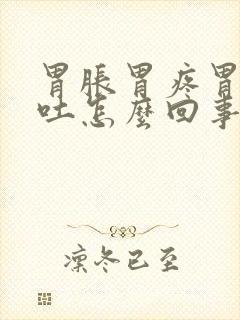 胃脹胃疼胃
吐怎麼回事
凜冬已至